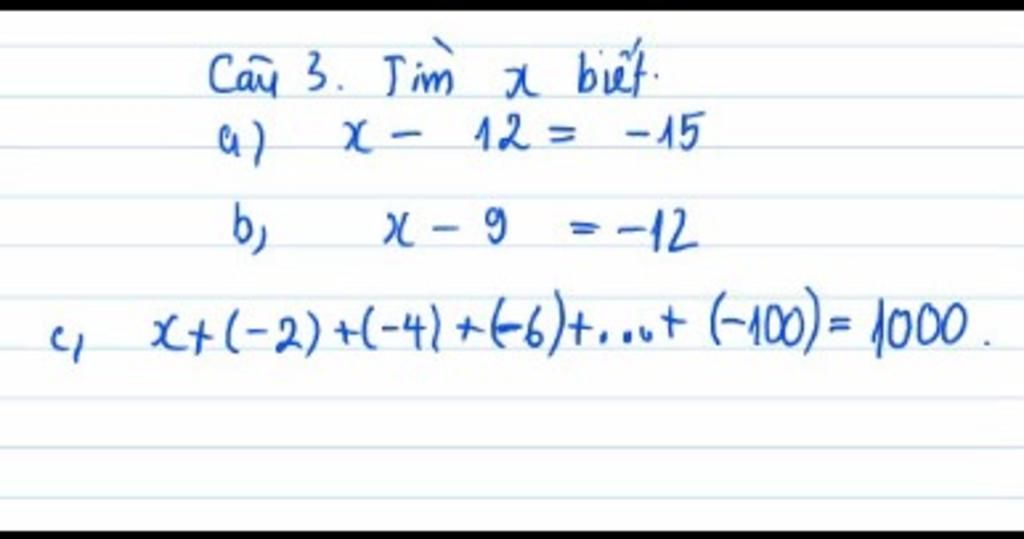 Câu 3. Tìm x biết.
a) x - 12 = -15
b, x - 9 = -12
c, x + (-2) + (-4) + (-6) + ... + (-100) = 1000.